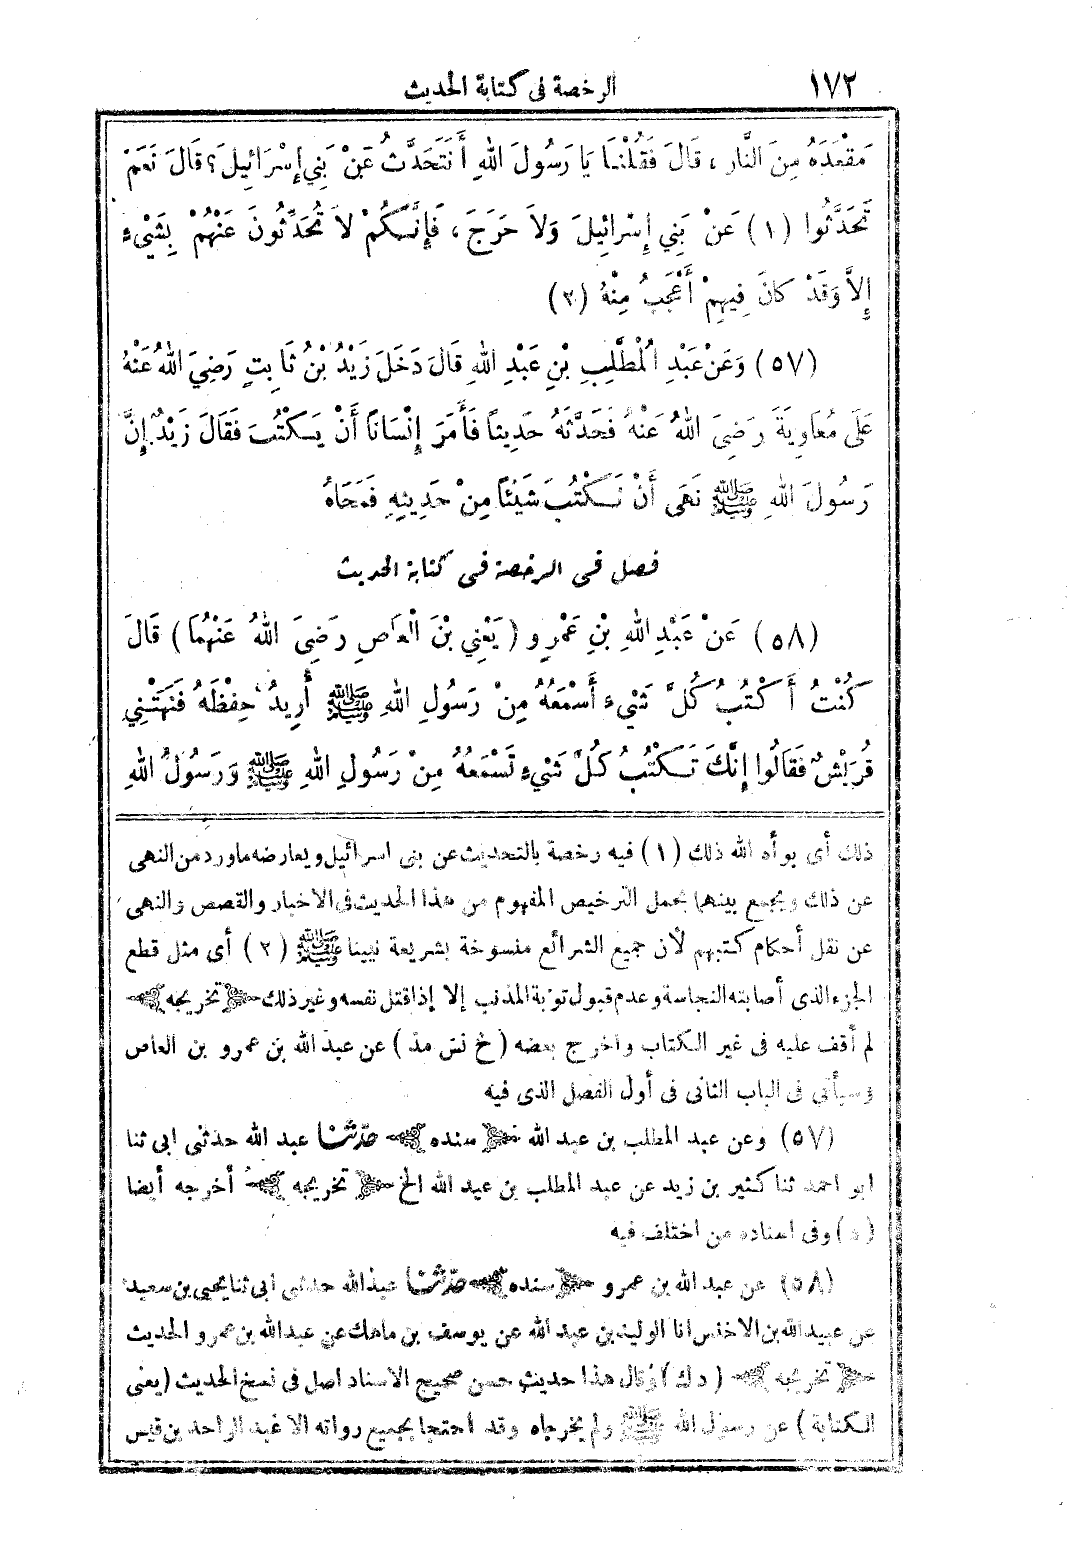 ١٧٢ الرخصة فى كتابة الحديث
مَقْعَدَهُ مِنَ النَّارِ ، قَالَ فَقُلْنَا يَا رَسُولَ اللهِ أَنَتَحَدَّثُ عَنْ بَنِي إِسْرَائِيلَ؟ قَالَ نَعَمْ
تَحَدَّثُوا (١) عَنْ بَنِي إِسْرَائِيلَ وَلاَ حَرَجَ ، فَإِنَّكُمْ لاَ تُحَدِّثُونَ عَنْهُمْ بِشَيْءٍ
إِلاَّ وَقَدْ كَانَ فِيهِمْ أَعْجَبُ مِنْهُ (٢)
(٥٧) وَعَنْ عَبْدِ الْمُطَّلِبِ بْنِ عَبْدِ اللهِ قَالَ دَخَلَ زَيْدُ بْنُ ثَابِتٍ رَضِيَ اللهُ عَنْهُ
عَلَى مُعَاوِيَةَ رَضِيَ اللهُ عَنْهُ فَحَدَّثَهُ حَدِيثاً فَأَمَرَ إِنْسَاناً أَنْ يَكْتُبَ فَقَالَ زَيْدٌ إِنَّ
رَسُولَ اللهِ ﷺ نَهَى أَنْ نَكْتُبَ شَيْئاً مِنْ حَدِيثِهِ فَمَحَاهُ
فصل فى الرخصة فى كتابة الحديث
(٥٨) عَنْ عَبْدِ اللهِ بْنِ عَمْرٍو (يَعْنِي بْنَ الْعَاصِ رَضِيَ اللهُ عَنْهُمَا) قَالَ
كُنْتُ أَكْتُبُ كُلَّ شَيْءٍ أَسْمَعُهُ مِنْ رَسُولِ اللهِ ﷺ أُرِيدُ حِفْظَهُ فَنَهَتْنِي
قُرَيْشٌ فَقَالُوا إِنَّكَ تَكْتُبُ كُلَّ شَيْءٍ تَسْمَعُهُ مِنْ رَسُولِ اللهِ ﷺ وَرَسُولُ اللهِ
ذلك أى بوأه الله ذلك (١) فيه رخصة بالتحديث عن بنى اسرائيل ويعارضه ماورد من النهى
عن ذلك ويجمع بينهما بحمل الترخيص المفهوم من هذا الحديث فى الاخبار والقصص والنهى
عن نقل أحكام كتبهم لأن جميع الشرائع منسوخة بشريعة نبينا ﷺ (٢) أى مثل قطع
الجزء الذى أصابته النجاسة وعدم قبول توبة المذنب إلا إذا قتل نفسه وغير ذلك تخريجه
لم أقف عليه فى غير الكتاب وأخرج بعضه (خ نس مذ) عن عبد الله بن عمرو بن العاص
وسيأتى فى الباب الثانى فى أول الفصل الذى فيه
(٥٧) وعن عبد المطلب بن عبد الله سنده حدثنا عبد الله حدثنى ابى ثنا
ابو احمد ثنا كثير بن زيد عن عبد المطلب بن عبد الله الخ تخريجه أخرجه أيضا
(د) وفى اسناده من اختلف فيه
(٥٨) عن عبد الله بن عمرو سنده حدثنا عبد الله حدثنى ابى ثنا يحيى بن سعيد
عن عبيد الله بن الاخنس انا الوليد بن عبد الله عن يوسف بن ماهك عن عبد الله بن عمرو الحديث
تخريجه (د ك) وقال هذا حديث حسن صحيح الاسناد اصل فى نسخ الحديث (يعنى
الكتابة) عن رسول الله ﷺ ولم يخرجاه وقد احتجا بجميع رواته الا عبد الواحد بن قيس